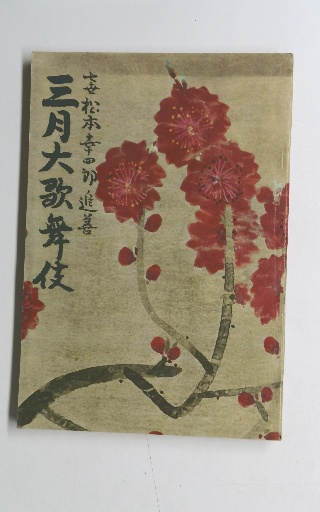 七世松本幸四郎追善
三月大歌舞伎